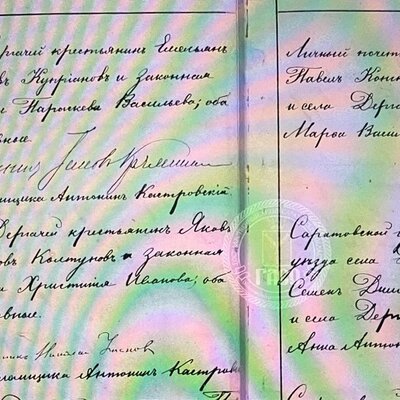 ргачей крестьянин Емельян
овъ Купріановъ и законная
и Параскева Васильева; оба
вные.
ломщика Антонинъ Кастровскій
Дергачей крестьянинъ Яковъ
овъ Колтуновъ и законная
и Христина Иванова; оба
вные.
аломщика Антонинъ Кастров
Личный почетн
Павелъ Конс
и села Дерга
Марѳа Васи
Саратовской г
уѣзда села
Семенъ Дми
и села Дерг
Анна Антон